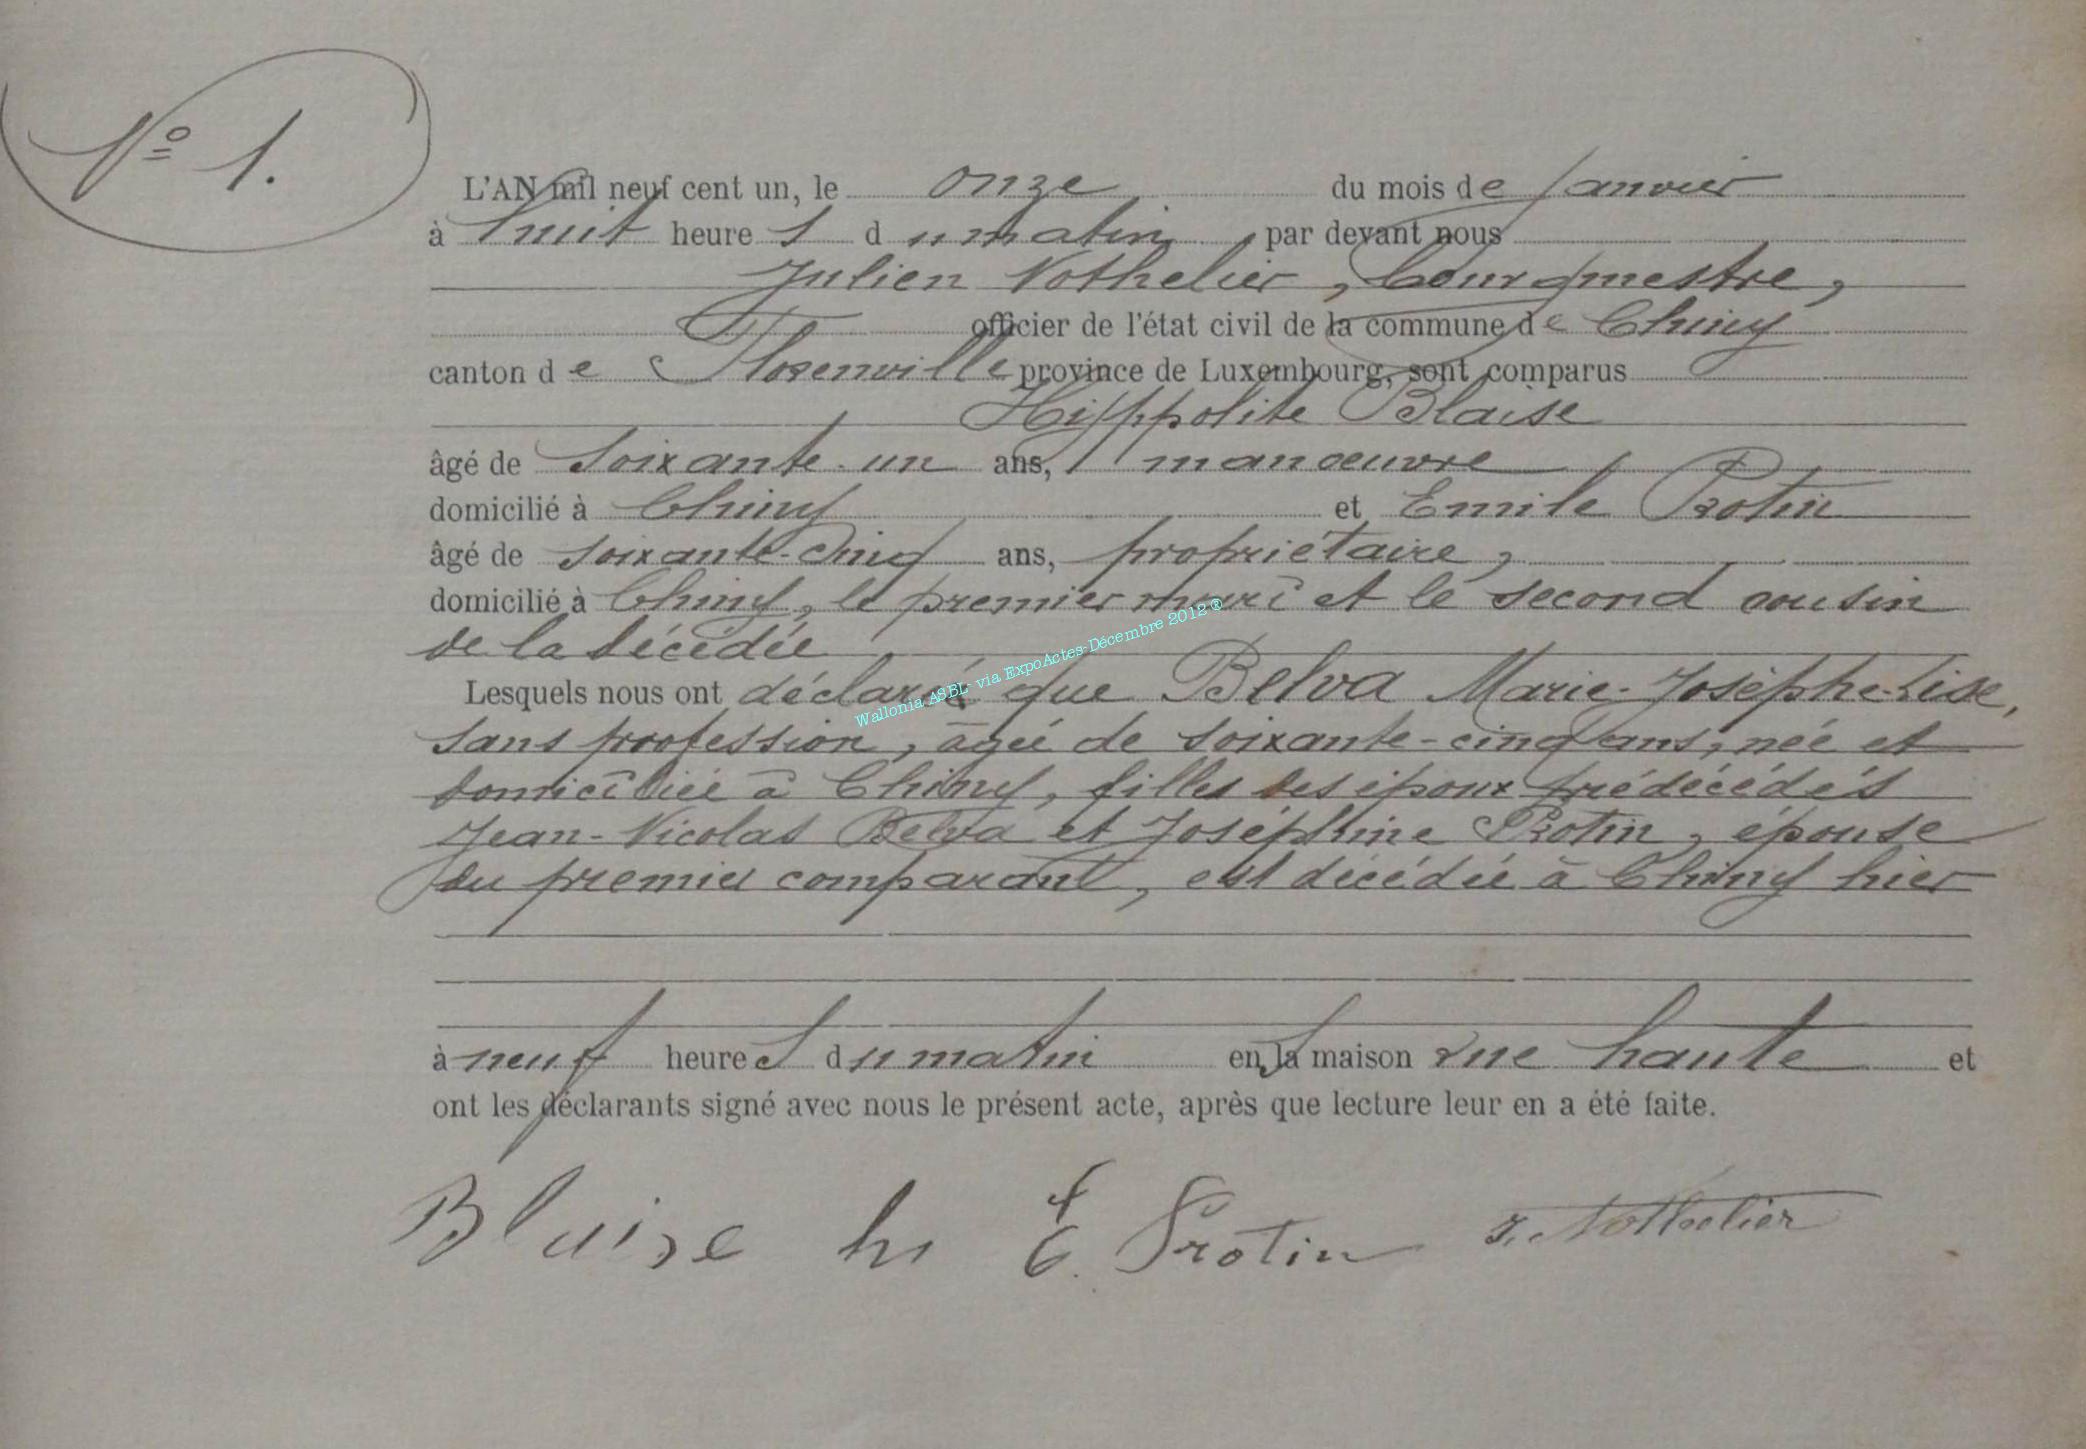 Nº 1.
L'AN mil neuf cent un, le onze du mois de Janvier
à huit heures du matin, par devant nous
Julien Nothelier, bourgmestre,
officier de l'état civil de la commune de Chiny
canton de Florenville province de Luxembourg, sont comparus
Hippolite Blaise
âgé de soixante-un ans, manoeuvre
domicilié à Chiny et Emile Protin
âgé de soixante-cinq ans, propriétaire,
domicilié à Chiny, le premier mari et le second cousin
de la décédée
Lesquels nous ont déclaré que Belva Marie-Josèphe-Lise,
sans profession, âgée de soixante-cinq ans, née et
domiciliée à Chiny, filles des époux prédécédés
Jean-Nicolas Belva et Joséphine Protin, épouse
du premier comparant, est décédée à Chiny hier
à neuf heures du matin en la maison rue haute et
ont les déclarants signé avec nous le présent acte, après que lecture leur en a été faite.
Blaise hi E. Protin J. Nothelier
Wallonia ASBL- via ExpoActes-Décembre 2012 ®